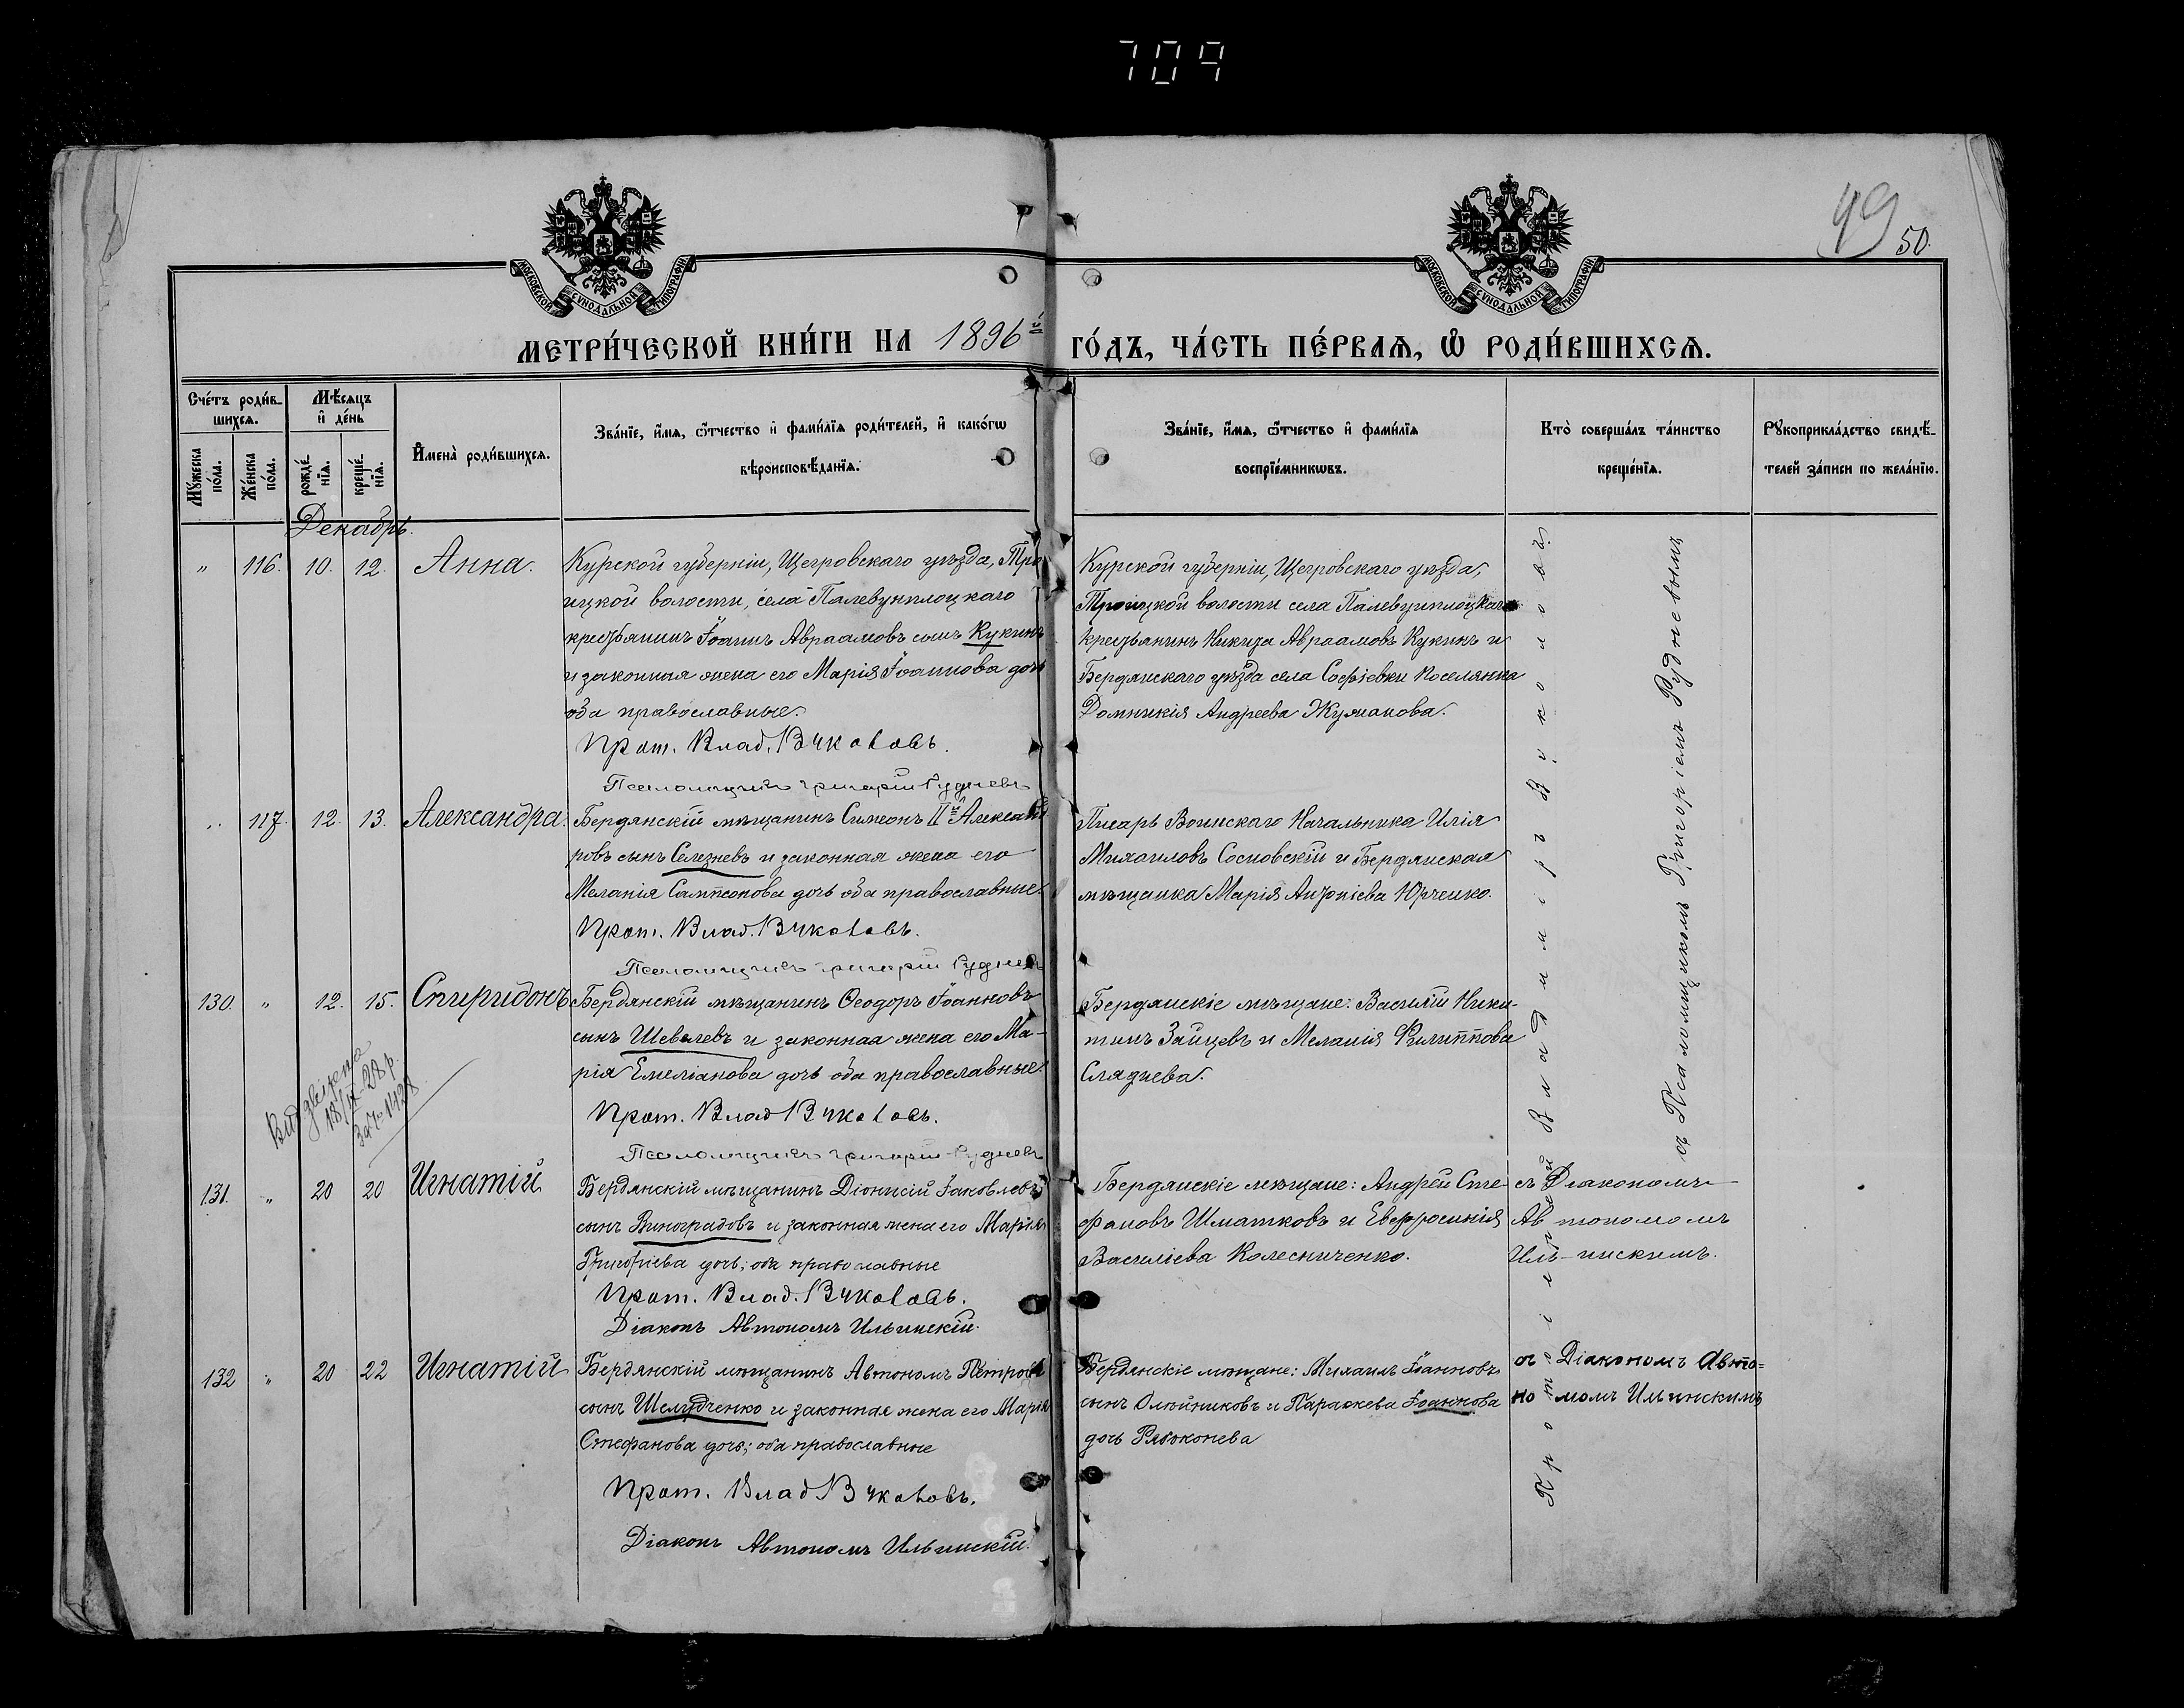 709
49
50.
МОСКОВСКОЙ СУНОДАЛЬНОЙ ТИПОГРАФІИ
МОСКОВСКОЙ СУНОДАЛЬНОЙ ТИПОГРАФІИ
МЕТРИ́ЧЕСКОЙ КНИ́ГИ НА 1896й ГО́ДЪ, ЧА́СТЬ ПЕ́РВАЯ, Ѡ РОДИ́ВШИХСЯ.
Сче́тъ роди́в-
шихся.
Мꙋ́жеска по́ла.
Же́нска по́ла.
Мѣ́сяцъ и де́нь
рожде́-
нїя.
креще́-
нїя.
Имена̀ роди́вшихся.
Зва́нїе, и́мя, ѻ́тчество и фами́лїя роди́телей, и како́гѡ
вѣроисповѣ́данїя.
Зва́нїе, и́мя, ѻ́тчество и фами́лїя
воспрїе́мникѡвъ.
Кто̀ соверша́лъ та́инство
креще́нїя.
Рꙋкоприкла́дство свидѣ́-
телей за́писи по жела́нїю.
Декабрь.
" 116. 10. 12. Анна.
Курской губерніи, Щегровскаго уѣзда, Тро
ицкой волости, села
крестьянинъ Іоаннъ Авраамовъ сынъ Кукинъ
и законная жена его Марія Іоаннова дочь
оба православные.
Прот. Влад.
Псаломщикъ Григорій Рудневъ
Курской губерніи, Щегровскаго уѣзда,
Троицкой волости села
крестьянинъ Никита Авраамовъ Кукинъ и
Бердянскаго уѣзда села Софіевки поселянка
Домникія Андреева Жуманова.
" 117. 12. 13. Александра.
Бердянскій мѣщанинъ Симеонъ IIй Александ
ровъ сынъ Селезневъ и законная жена его
Меланія Сампсонова дочь оба православные.
Прот. Влад.
Псаломщикъ Григорій Рудневъ
Писарь Воинскаго Начальника Илія
Михаиловъ Сосновскій и Бердянская
мѣщанка Марія Антоніева Юрченко.
130. " 12. 15. Спиридонъ
Бердянскій мѣщанинъ Ѳеодоръ Іоанновъ
сынъ Шевелевъ и законная жена его Ма-
рія Емеліанова дочь оба православные.
Прот. Влад
Псаломщикъ Григорій Рудневъ
Бердянскіе мѣщане: Василій Ники-
тинъ Зайцевъ и Меланія Филиппова
Сляднева.
131. " 20 20 Игнатій
Бердянскій мѣщанинъ Діонисій Іаковлевъ
сынъ Виноградовъ и законная жена его Марія
Григоріева дочь; оба православные
Прот. Влад.
Діаконъ Автономъ Ильинскій.
Бердянскіе мѣщане: Андрей Сте-
фановъ Шматковъ и Евфросинія
Василіева Колесниченко.
съ Діакономъ
Автономомъ
Ильинскимъ.
132 " 20 22 Игнатій
Бердянскій мѣщанинъ Автономъ Петровъ
сынъ Шелудченко и законная жена его Марія
Стефанова дочь; оба православные
Прот. Влад
Діаконъ Автономъ Ильинскій.
Бердянскіе мѣщане: Михаилъ Іоанновъ
сынъ Олейниковъ и Параскева Іоаннова
дочь Рябоконева
съ Діакономъ Авто-
номомъ Ильинскимъ
Протоіерей Владиміръ
съ Псаломщикомъ Григоріемъ Рудневымъ